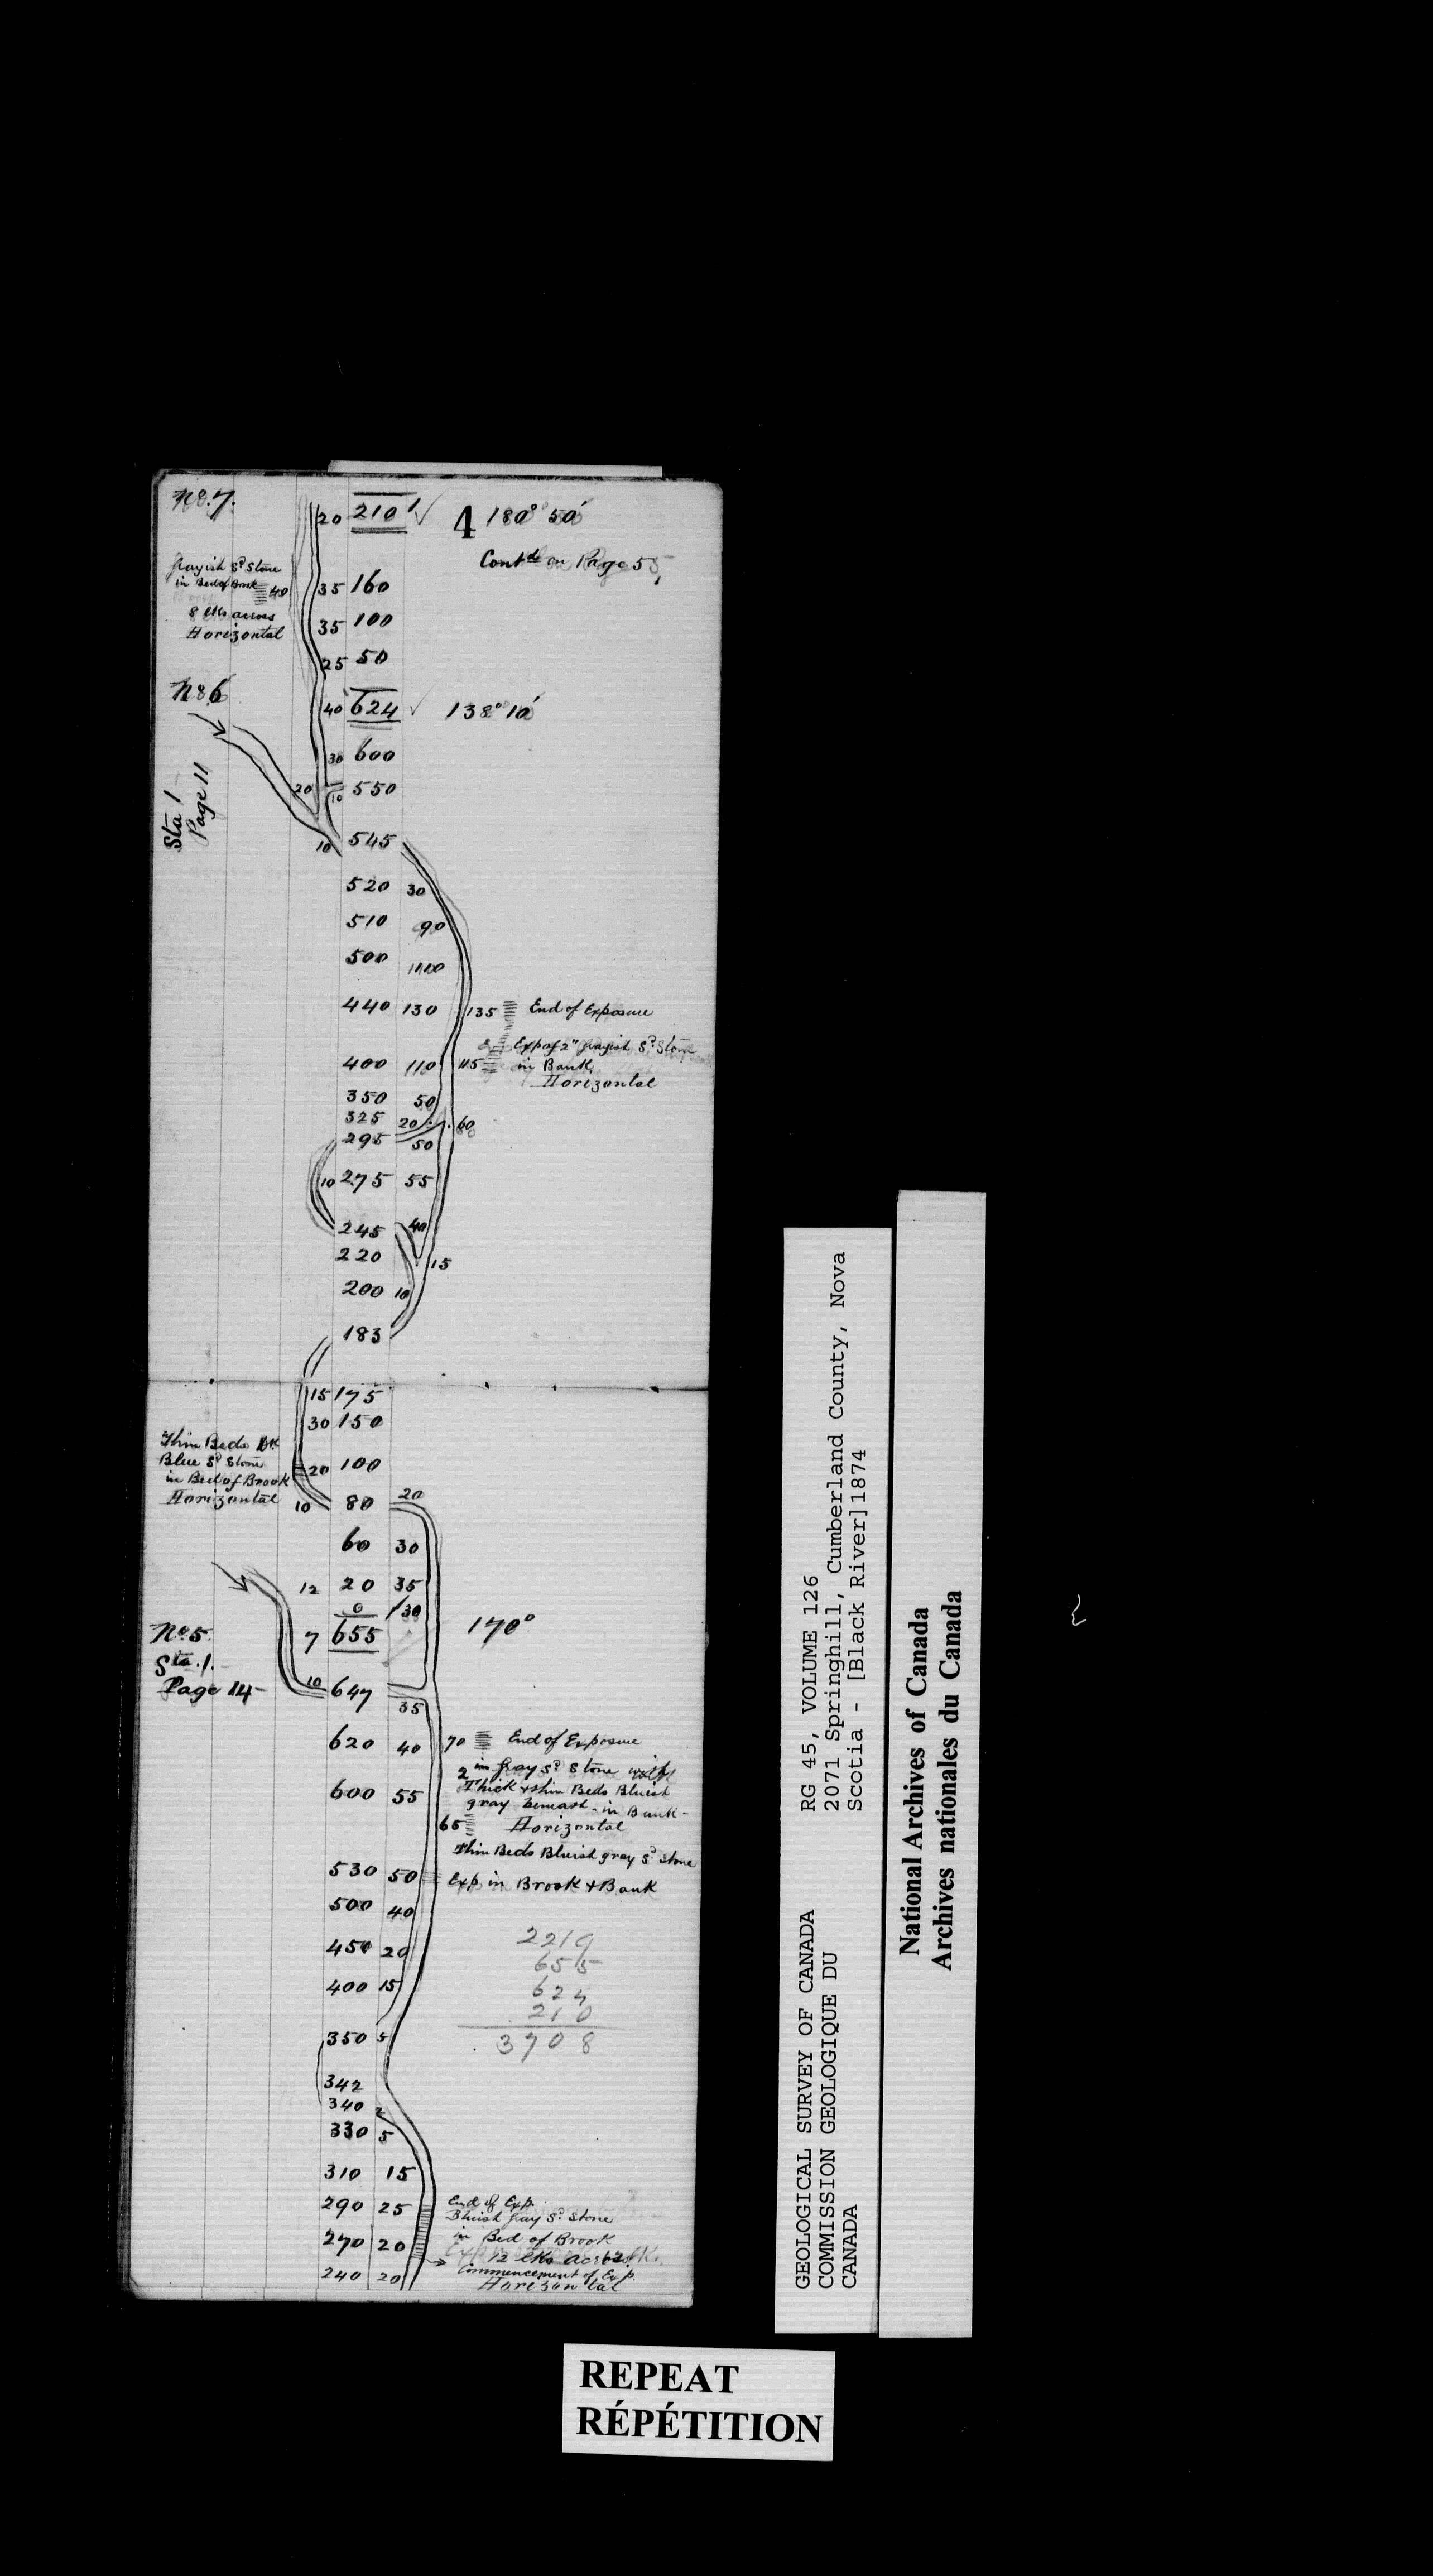 No. 7.
20 210 1 4 180° 50'
Contd on Page 5,
Grayish Sd Stone
in Bed of Brook 40 35 160
8 lks across
Horizontal
35 100
25 50
No 6
40 624 138° 10'
30 600
20 10 550
Sta 1 -
Page 11
10 545
520 30
510 90
500 110
440 130 135 End of Exposure
Exp of 2" Grayish Sd Stone
400 110 115 in Bank,
Horizontal
350 50
325 20 60
295 50
10 275 55
245 40
220 15
200 10
183
15 175
30 150
Thin Beds Dk
Blue Sd Stone
in Bed of Brook 20 100
Horizontal 10 80 20
60 30
12 20 35
0 30
No. 5 7 655 170°
Sta. 1. -
Page 14 - 10 647
35
620 40 70 End of Exposure
in Gray Sd Stone with
2 Thick & thin Beds Bluish
600 55 gray beneath - in Bank -
65 Horizontal
Thin Beds Bluish gray Sd Stone
530 50 Exp. in Brook & Bank
500 40
450 20
400 15
2219
655
624
210
3708
350 5
342
340 2
330 5
310 15
290 25 End of Exp.
Bluish Gray Sd. Stone
in Bed of Brook
270 20 12 lks Across
Commencement of Exp.
240 20 Horizontal
GEOLOGICAL SURVEY OF CANADA
COMMISSION GEOLOGIQUE DU
CANADA
RG 45, VOLUME 126
2071 Springhill, Cumberland County, Nova
Scotia - [Black River]1874
National Archives of Canada
Archives nationales du Canada
REPEAT
RÉPÉTITION